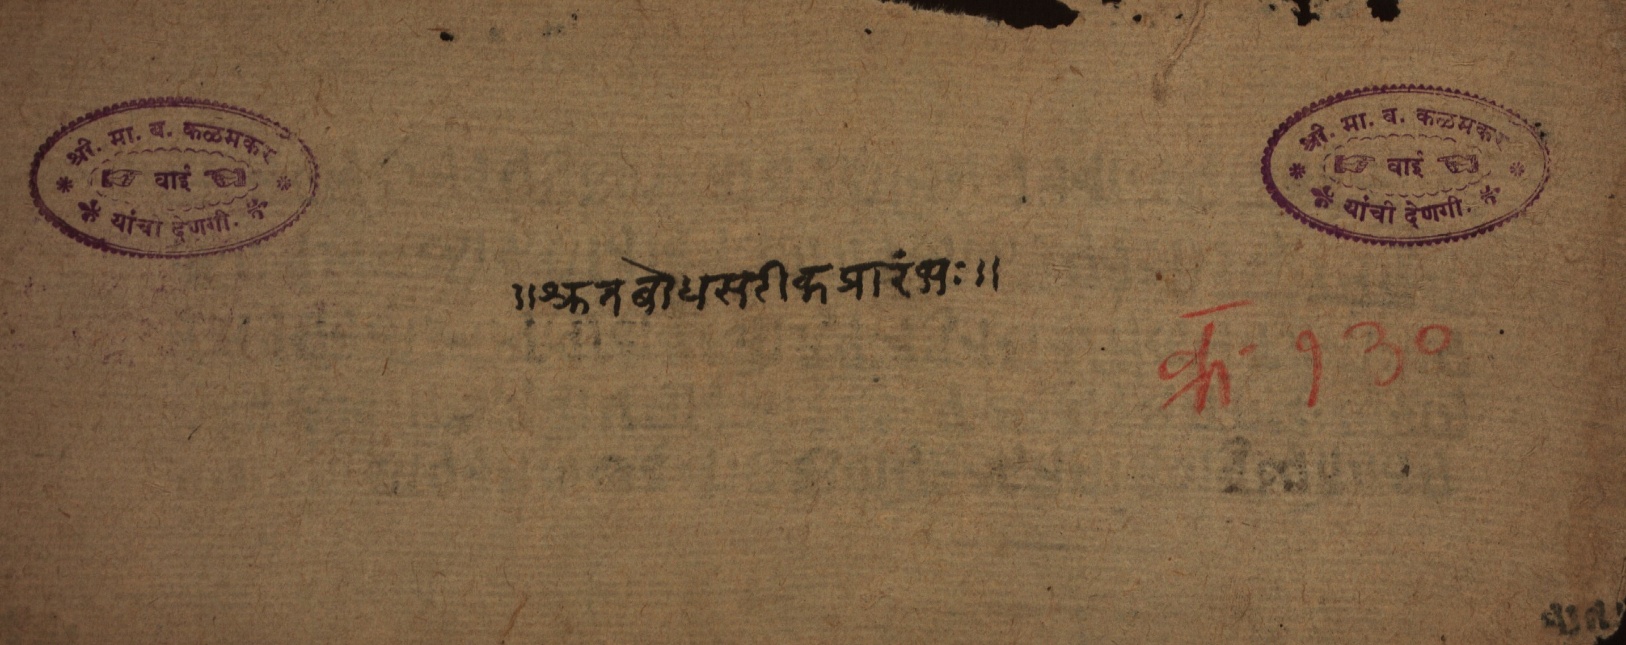 श्री. मा. ब. कळमकर
वाई
यांची देणगी.
श्री. मा. ब. कळमकर
वाई
यांची देणगी.
॥श्रुतबोधसटीकप्रारंभः॥
क्रं १३०